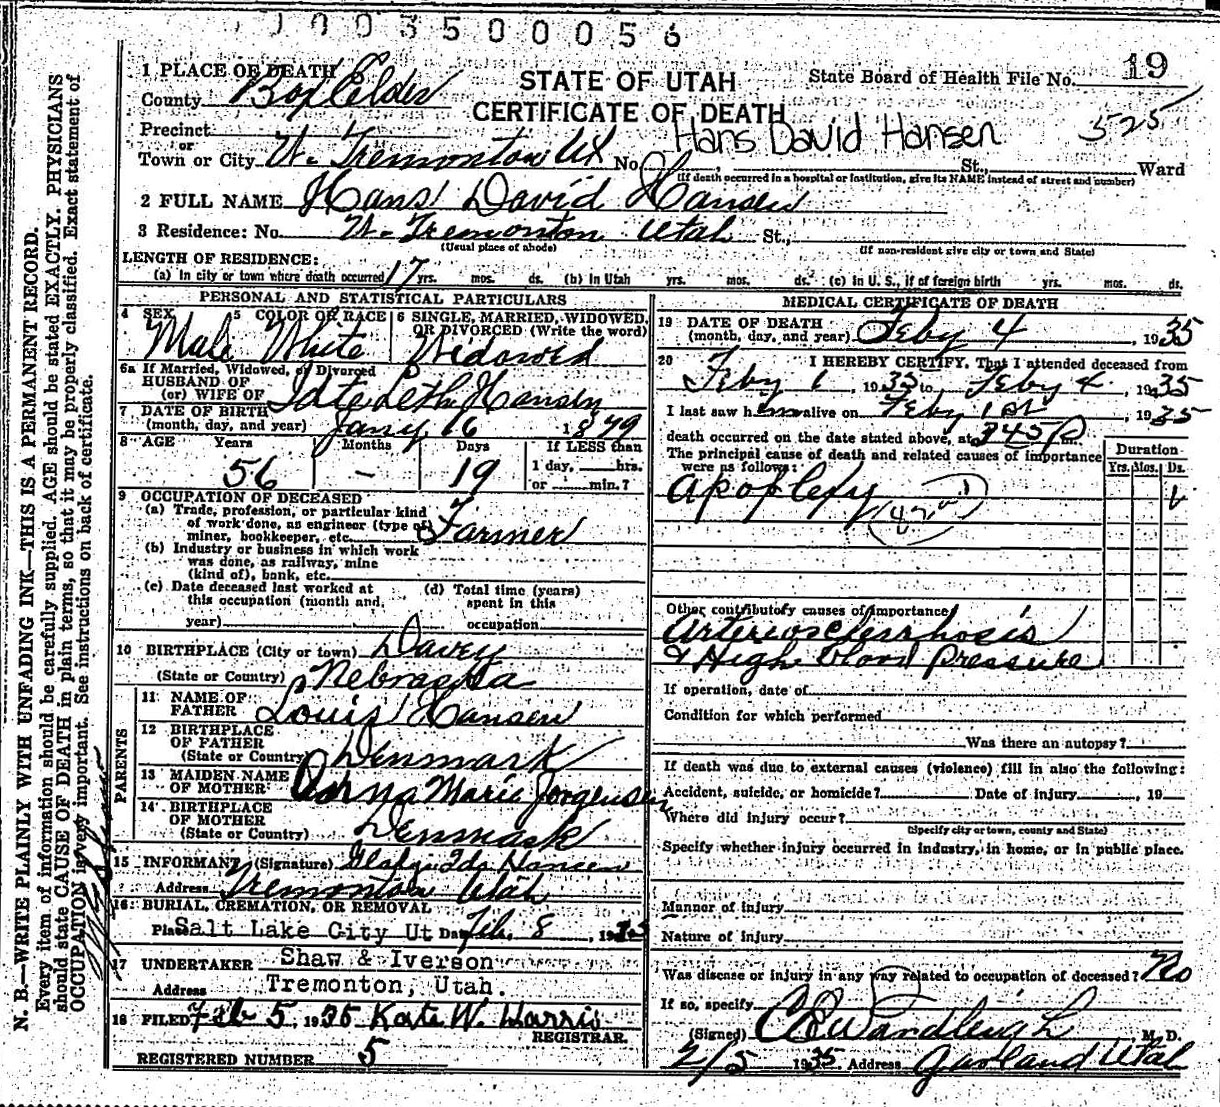 0 0 3 5 0 0 0 5 6
1 PLACE OF DEATH
County Box Elder
STATE OF UTAH
CERTIFICATE OF DEATH
State Board of Health File No. 19
Precinct
or
Town or City W. Tremonton Ut No. St., Ward
Hans David Hansen 525
(If death occurred in a hospital or institution, give its NAME instead of street and number)
2 FULL NAME Hans David Hansen
3 Residence: No. W. Tremonton Utah St.,
(Usual place of abode) (If non-resident give city or town and State)
LENGTH OF RESIDENCE:
(a) In city or town where death occurred 17 yrs. mos. ds. (b) In Utah yrs. mos. ds. (c) In U. S., if of foreign birth yrs. mos. ds.
PERSONAL AND STATISTICAL PARTICULARS
4 SEX 5 COLOR OR RACE 6 SINGLE, MARRIED, WIDOWED, OR DIVORCED (Write the word)
Male White Widowed
6a If Married, Widowed, or Divorced
HUSBAND OF
(or) WIFE OF Leth Hansen
7 DATE OF BIRTH
(month, day, and year) Jany 16 1879
8 AGE Years Months Days If LESS than
1 day, hrs.
56 - 19 or min.?
9 OCCUPATION OF DECEASED
(a) Trade, profession, or particular kind
of work done, as engineer (type of)
miner, bookkeeper, etc. Farmer
(b) Industry or business in which work
was done, as railway, mine
(kind of), bank, etc.
(c) Date deceased last worked at
this occupation (month and
year)
(d) Total time (years)
spent in this
occupation
10 BIRTHPLACE (City or town) Davey
(State or Country) Nebraska
PARENTS
11 NAME OF
FATHER Louis Hansen
12 BIRTHPLACE
OF FATHER
(State or Country) Denmark
13 MAIDEN NAME
OF MOTHER Maria Jorgensen
14 BIRTHPLACE
OF MOTHER
(State or Country) Denmark
15 INFORMANT (Signature) Hansen
Address Tremonton Utah
16 BURIAL, CREMATION, OR REMOVAL
Place Salt Lake City Ut Date Feb. 8, 1935
17 UNDERTAKER Shaw & Iverson
Address Tremonton, Utah.
18 FILED Feb 5, 1935 Kate W. Harris
REGISTRAR.
REGISTERED NUMBER 5
MEDICAL CERTIFICATE OF DEATH
19 DATE OF DEATH
(month, day, and year) Feby 4, 1935
20 I HEREBY CERTIFY, That I attended deceased from
Feby 1, 1935 to Feby 4, 1935
I last saw him alive on Feby 1st, 1935
death occurred on the date stated above, at 345 P m.
The principal cause of death and related causes of importance
were as follows:
Duration
Yrs. Mos. Ds.
Apoplexy
Other contributory causes of importance
Arteriosclerrhosis
& High blood pressure
If operation, date of
Condition for which performed
Was there an autopsy?
If death was due to external causes (violence) fill in also the following:
Accident, suicide, or homicide? Date of injury, 19
Where did injury occur?
(Specify city or town, county and State)
Specify whether injury occurred in industry, in home, or in public place.
Manner of injury
Nature of injury
Was disease or injury in any way related to occupation of deceased? No
If so, specify
(Signed) M. D.
2/5 1935 Address Garland Utah
N. B.—WRITE PLAINLY WITH UNFADING INK—THIS IS A PERMANENT RECORD.
Every item of information should be carefully supplied. AGE should be stated EXACTLY. PHYSICIANS
should state CAUSE OF DEATH in plain terms, so that it may be properly classified. Exact statement of
OCCUPATION is very important. See instructions on back of certificate.